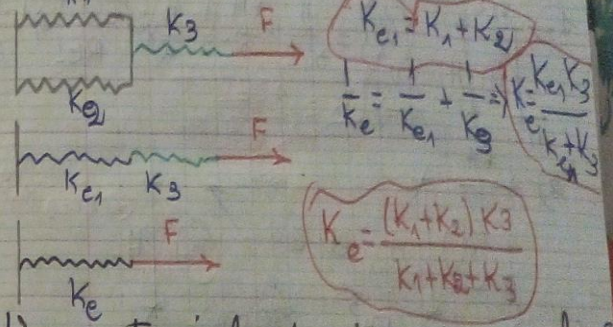 K3 F
Ke1 = K1 + K2
Ke2
1/Ke = 1/Ke1 + 1/K3 => Ke = Ke1 K3 / Ke1 + K3
F
Ke1 K3
Ke = (K1+K2) K3 / K1+K2+K3
F
Ke